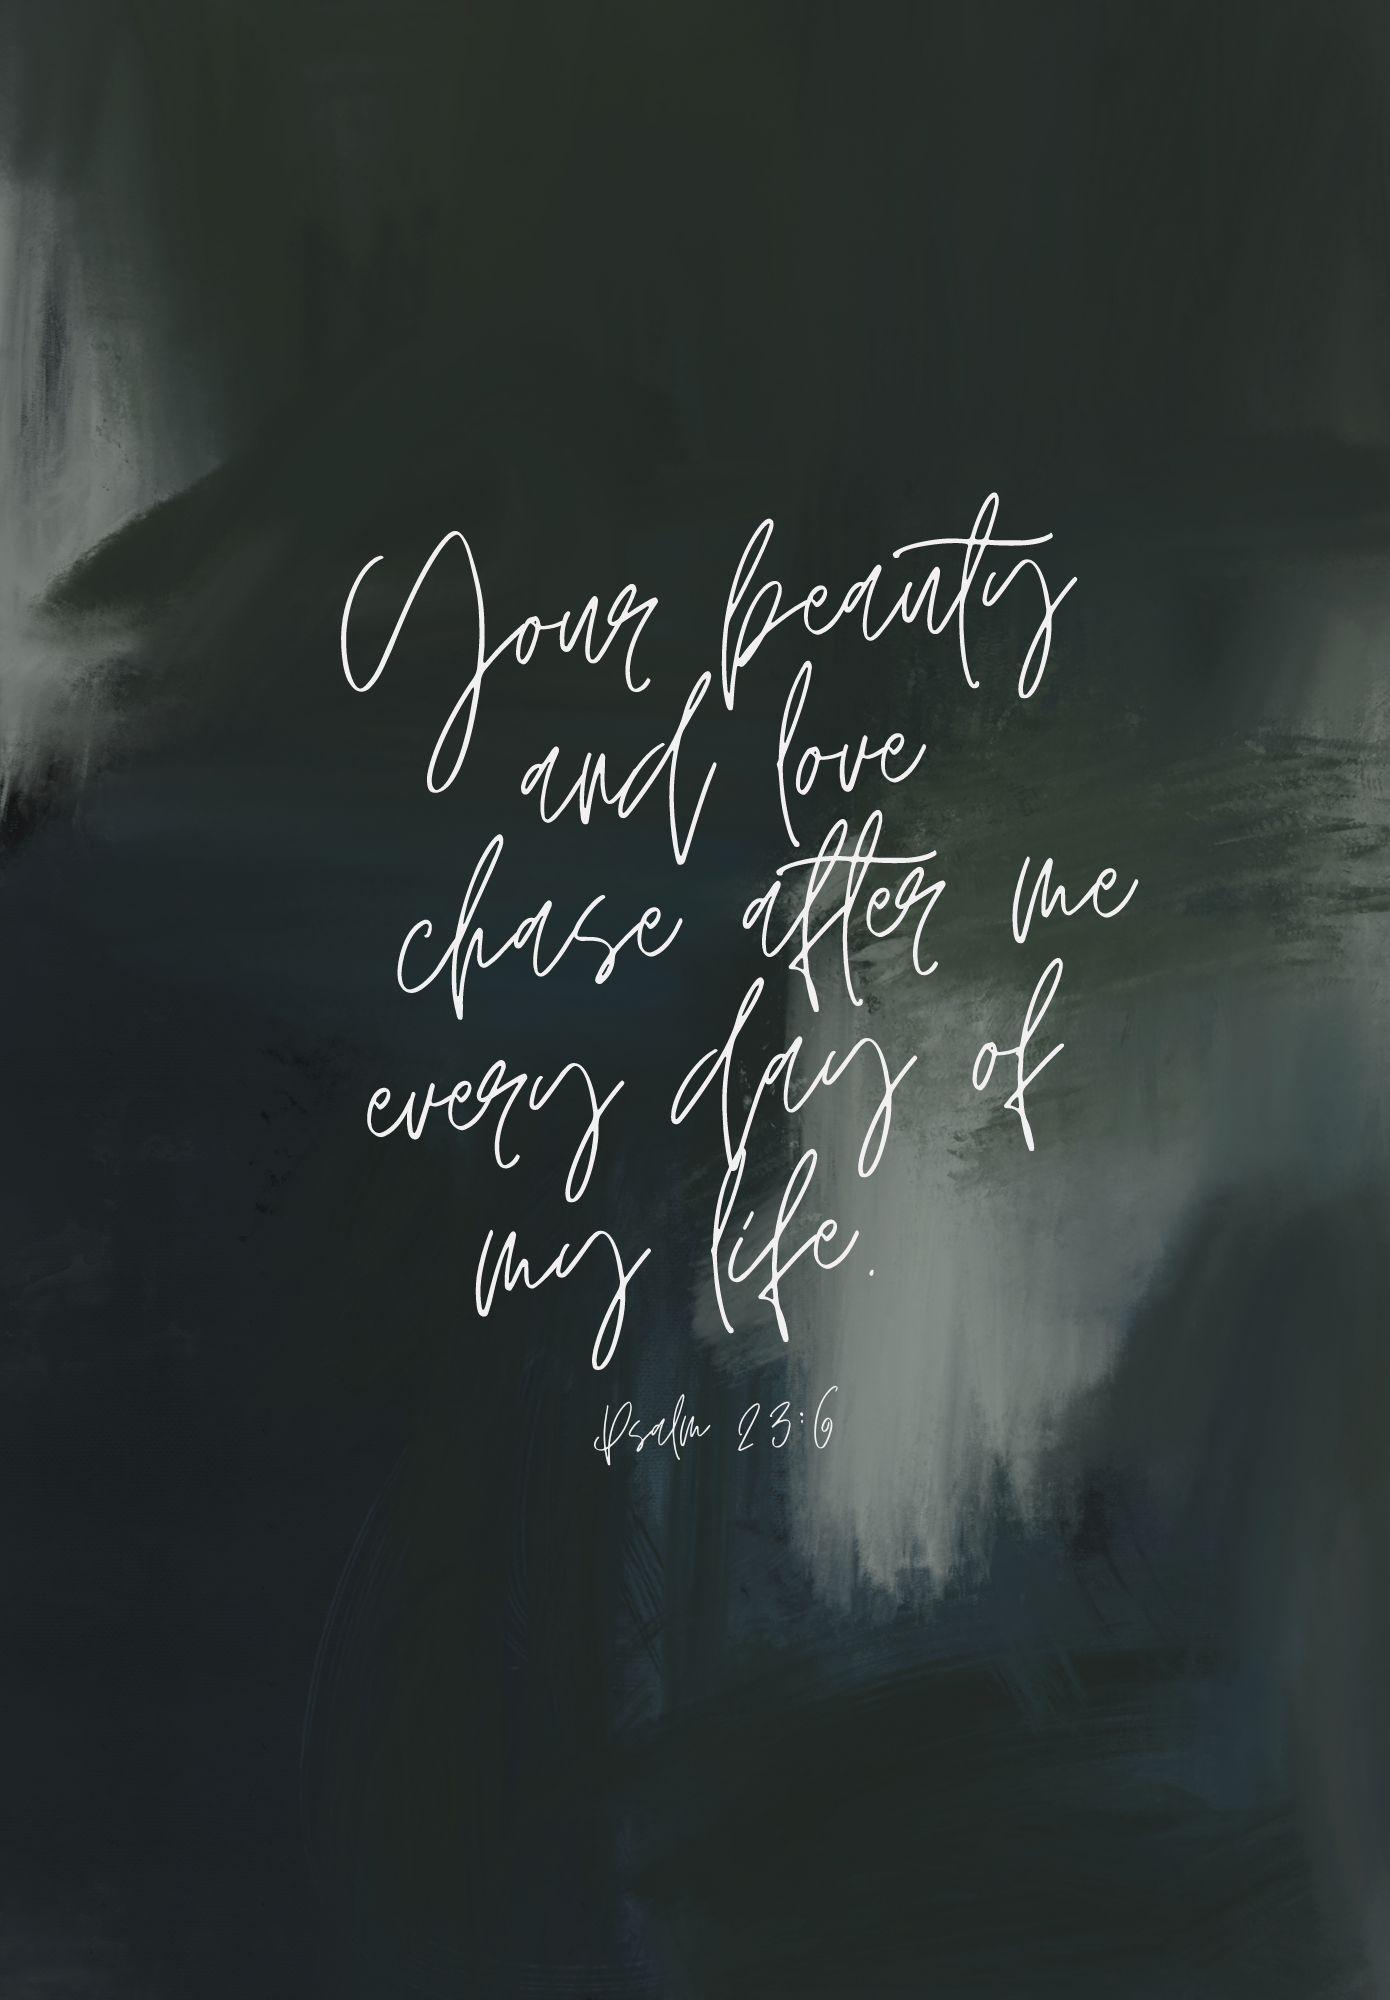 Your beauty
and love
chase after me
every day of
my life.
Psalm 23:6